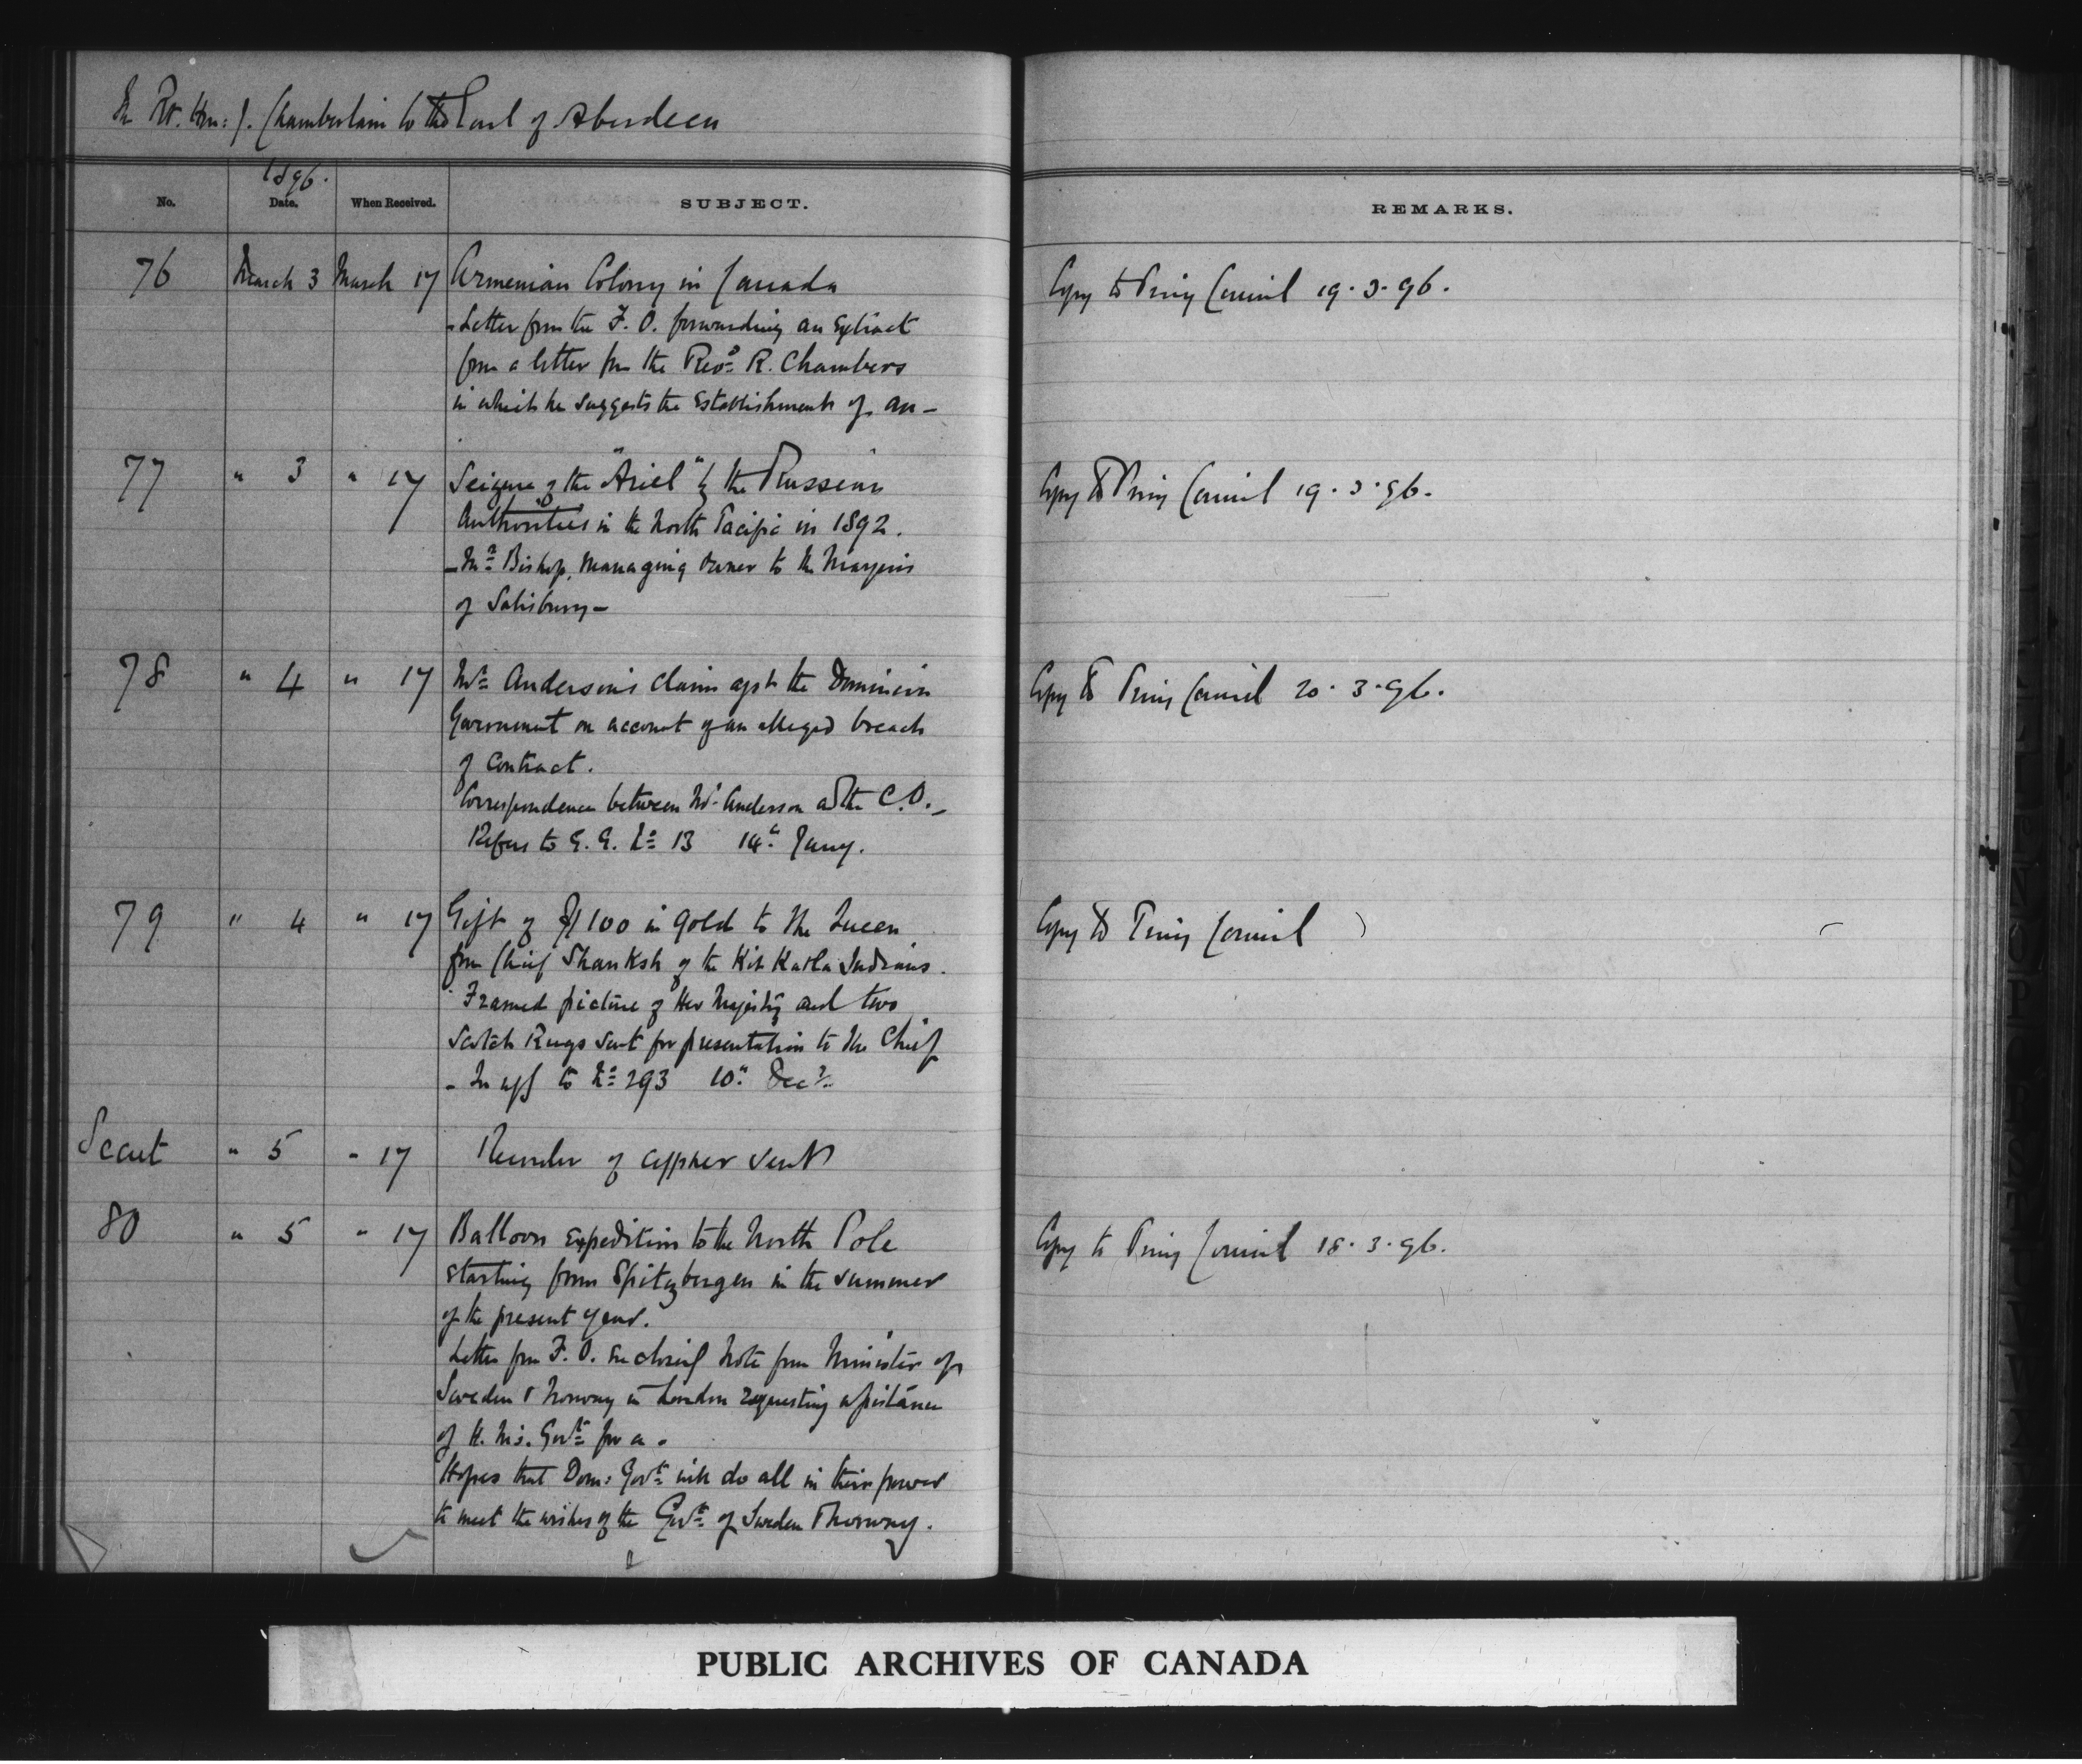 The Rt. Hon: J. Chamberlain to the Earl of Aberdeen
1896.
No. Date. When Received. SUBJECT. REMARKS.
76 March 3 March 17 Armenian Colony in Canada Copy to Privy Council 19.3.96.
- Letter from the F. O. forwarding an Extract
from a letter from the Revd R. Chambers
in which he suggests the Establishment of an -
77 " 3 " 17 Seizure of the "Ariel" by the Russian Copy to Privy Council 19.3.96.
Authorities in the North Pacific in 1892.
- Mr Bishop, Managing Owner to the Marquis
of Salisbury -
78 " 4 " 17 Mr Anderson's claim agst the Dominion Copy to Privy Council 20.3.96.
Government on account of an alleged breach
of Contract.
Correspondence between Mr Anderson and the C.O. -
Refers to G. G. No 13 14th Jany.
79 " 4 " 17 Gift of $100 in gold to the Queen Copy to Privy Council
from Chief Shanksh of the Kit Katla Indians.
Framed picture of Her Majesty and two
Scotch Rugs sent for presentation to the Chief
- In to No 293 10th Decr
Secret " 5 " 17 of cypher sent
80 " 5 " 17 Balloon Expedition to the North Pole Copy to Privy Council 18.3.96.
starting from Spitzbergen in the summer
of the present year.
Letter from F. O. enclosing Note from Minister of
Sweden & Norway in London requesting assistance
of H. M's. Govt for a -
Hopes that Dom: Govt will do all in their power
to meet the wishes of the Govt of Sweden & Norway.
PUBLIC ARCHIVES OF CANADA